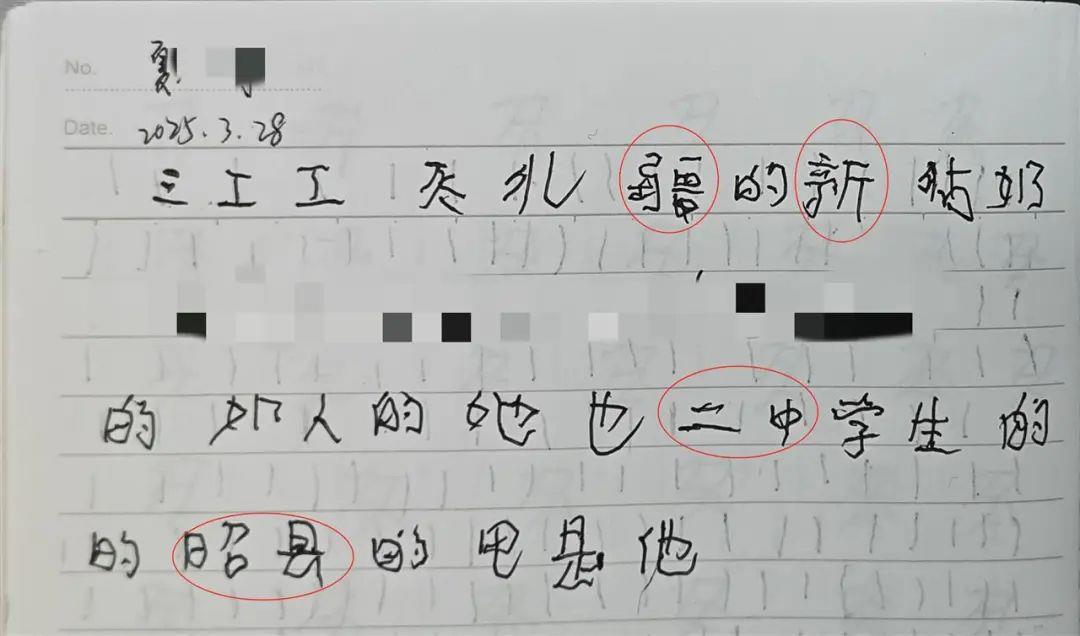 No. 夏
Date. 2025.3.28
三工工 疆的新 奶
的 人的她也二中学生的
的昭县的 是他